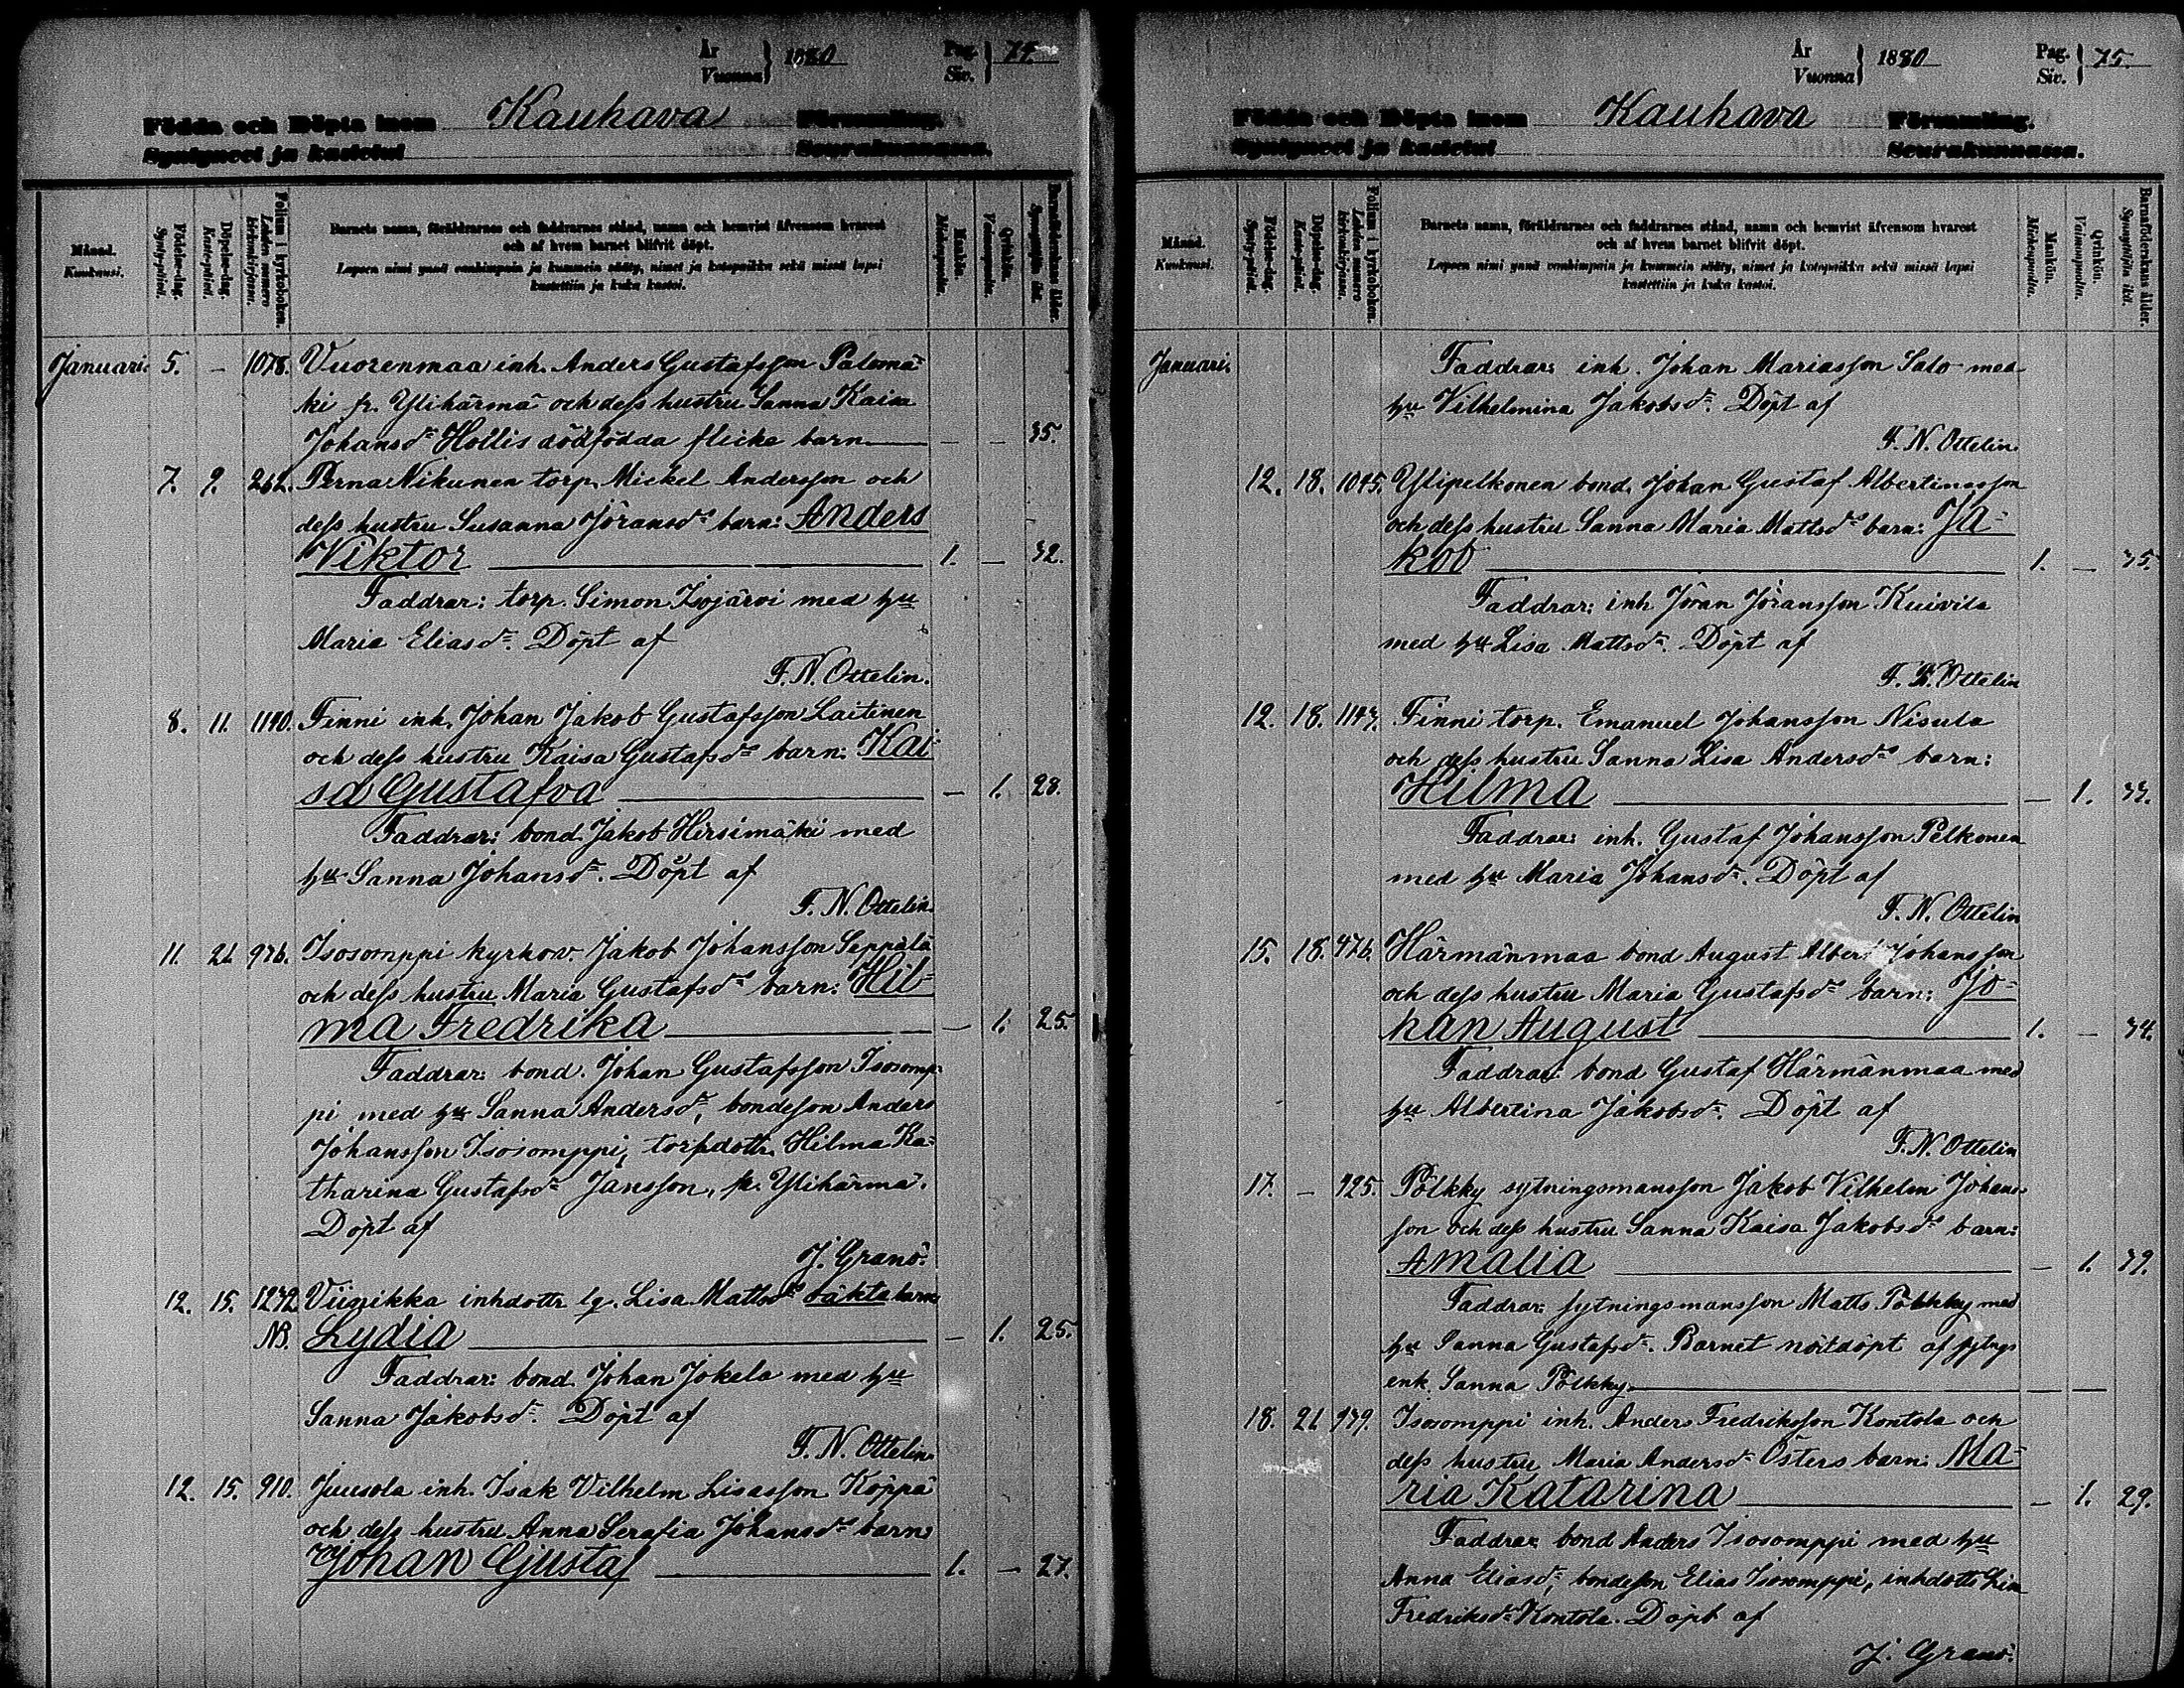 År
Vuonna } 1880
Pag.
Siv. } 74.
Födda och Döpta inom Kauhava Församling.
Syntyneet ja kastetut Seurakunnassa.
Månad.
Kuukausi.
Födelse-dag.
Synty-päivä.
Döpelse-dag.
Kaste-päivä.
Folium i kyrkoboken.
Lehden numero kirkonkirjassa.
Barnets namn, föräldrarnes och faddrarnes stånd, namn och hemvist äfvensom hvarest
och af hvem barnet blifvit döpt.
Lapsen nimi ynnä vanhimpain ja kummein sääty, nimet ja kotopaikka sekä missä lapsi
kastettiin ja kuka kastoi.
Mankön.
Miehenpuolia.
Qvinkön.
Vaimonpuolia.
Barnaföderskans ålder.
Synnyttäjän ikä.
Januari. 5. – 1078. Vuorenmaa inh. Anders Gustafsson Palomä-
ki fr. Ylihärmä och dess hustru Sanna Kaisa
Johansdr Hollis dödfödda flicke barn – – 35.
7. 9. 262. Perna Nikunen torp. Mickel Andersson och
dess hustru Susanna Jöransdrs barn: Anders
Viktor 1. – 32.
Faddrar: torp. Simon Isojärvi med hu
Maria Eliasdr. Döpt af
F. N. Ottelin.
8. 11. 1190. Finni inh. Johan Jakob Gustafsson Laitinen
och dess hustru Kaisa Gustafsdrs barn: Kai-
sa Gustafva – 1. 28.
Faddrar: bond. Jakob Hirsimäki med
hu Sanna Johansdr. Döpt af
F. N. Ottelin.
11. 21. 976. Isosomppi kyrkov. Jakob Johansson Seppälä
och dess hustru Maria Gustafsdrs barn: Hil-
ma Fredrika – 1. 25.
Faddrar: bond. Johan Gustafsson Isosomp-
pi med hu Sanna Andersdr, bondeson Anders
Johansson Isosomppi, torpdottr. Hilma Ka-
tharina Gustafsdr Jansson, fr. Ylihärmä.
Döpt af
J. Granö.
12. 15. 1232. Viinikka inhdottr lg. Lisa Mattsdrs oäkta barn
NB. Lydia – 1. 25.
Faddrar: bond. Johan Jokela med hu
Sanna Jakobsdr. Döpt af
F. N. Ottelin.
12. 15. 910. Juusola inh. Isak Vilhelm Lisasson Köppä
och dess hustru Anna Serafia Johansdrs barn:
Johan Gustaf 1. – 27.
År
Vuonna } 1880
Pag.
Siv. } 75.
Födda och Döpta inom Kauhava Församling.
Syntyneet ja kastetut Seurakunnassa.
Månad.
Kuukausi.
Födelse-dag.
Synty-päivä.
Döpelse-dag.
Kaste-päivä.
Folium i kyrkoboken.
Lehden numero kirkonkirjassa.
Barnets namn, föräldrarnes och faddrarnes stånd, namn och hemvist äfvensom hvarest
och af hvem barnet blifvit döpt.
Lapsen nimi ynnä vanhimpain ja kummein sääty, nimet ja kotopaikka sekä missä lapsi
kastettiin ja kuka kastoi.
Mankön.
Miehenpuolia.
Qvinkön.
Vaimonpuolia.
Barnaföderskans ålder.
Synnyttäjän ikä.
Januari. Faddrar: inh. Johan Mariasson Salo med
hu Vilhelmina Jakobsdr. Döpt af
F. N. Ottelin.
12. 18. 1045. Ylipelkonen bond. Johan Gustaf Albertinasson
och dess hustru Sanna Maria Mattsdrs barn: Ja-
kob 1. – 35.
Faddrar: inh. Jöran Jöransson Kuivila
med hu Lisa Mattsdr. Döpt af
F. N. Ottelin
12. 18. 1143. Finni torp. Emanuel Johansson Nisula
och dess hustru Sanna Lisa Andersdrs barn:
Hilma – 1. 33.
Faddrar: inh. Gustaf Johansson Pelkonen
med hu Maria Johansdr. Döpt af
F. N. Ottelin
15. 18. 476. Härmänmaa bond August Albert Johansson
och dess hustru Maria Gustafsdrs barn: Jo-
han August 1. – 34.
Faddrar: bond Gustaf Härmänmaa med
hu Albertina Jakobsdr. Döpt af
F. N. Ottelin
17. – 925. Pölkky sytningsmansson Jakob Vilhelm Johans-
son och dess hustru Sanna Kaisa Jakobsdrs barn:
Amalia – 1. 39.
Faddrar: sytningsmansson Matts Pölkky med
hu Sanna Gustafsdr. Barnet nöddöpt af sytngs
enk. Sanna Pölkky. – –
18. 21. 939. Isosomppi inh. Anders Fredriksson Kontola och
dess hustru Maria Andersdr Östers barn: Ma-
ria Katarina – 1. 29.
Faddrar: bond Anders Isosomppi med hu
Anna Eliasdr, bondeson Elias Isosomppi, inhdottr Lisa
Fredriksdr Kontola. Döpt af
J. Granö.